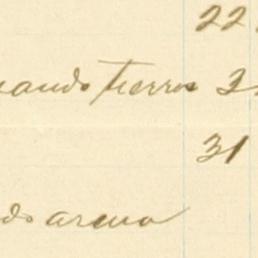 22
ando tierras 3
31
do arena